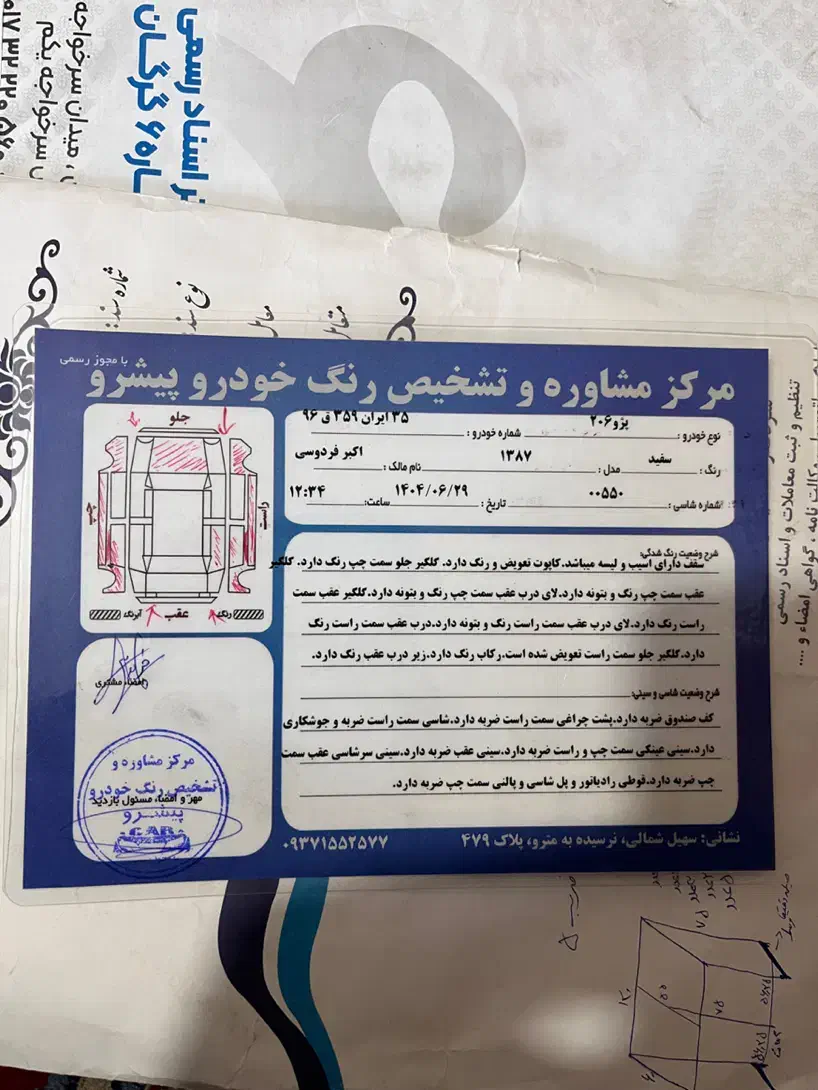 دفتر اسناد رسمی
شماره ۶ گرگان
میدان سرخواجه
سرخواجه یکم
شماره سند:
نوع سند
تنظیم و ثبت معاملات و اسناد رسمی
وکالت نامه ، گواهی امضاء و ....
با مجوز رسمی
مرکز مشاوره و تشخیص رنگ خودرو پیشرو
نوع خودرو: پژو۲۰۶ شماره خودرو: ۳۵ ایران ۳۵۹ ق ۹۶
رنگ: سفید مدل: ۱۳۸۷ نام مالک: اکبر فردوسی
شماره شاسی: ۰۰۵۵۰ تاریخ: ۱۴۰۴/۰۶/۲۹ ساعت: ۱۲:۳۴
جلو
چپ
راست
عقب
رنگ
آبرنگ
شرح وضعیت رنگ شدگی:
سقف دارای آسیب و لیسه میباشد.کاپوت تعویض و رنگ دارد. گلگیر جلو سمت چپ رنگ دارد. گلگیر
عقب سمت چپ رنگ و بتونه دارد.لای درب عقب سمت چپ رنگ و بتونه دارد.گلگیر عقب سمت
راست رنگ دارد.لای درب عقب سمت راست رنگ و بتونه دارد.درب عقب سمت راست رنگ
دارد.گلگیر جلو سمت راست تعویض شده است.رکاب رنگ دارد.زیر درب عقب رنگ دارد.
شرح وضعیت شاسی و سینی:
کف صندوق ضربه دارد.پشت چراغی سمت راست ضربه دارد.شاسی سمت راست ضربه و جوشکاری
دارد.سینی عینکی سمت چپ و راست ضربه دارد.سینی عقب ضربه دارد.سینی سرشاسی عقب سمت
چپ ضربه دارد.قوطی رادیاتور و پل شاسی و پالتی سمت چپ ضربه دارد.
امضاء مشتری
مهر و امضاء مسئول بازدید
مرکز مشاوره و
تشخیص رنگ خودرو
پیشرو
CAR
نشانی: سهیل شمالی، نرسیده به مترو، پلاک ۴۷۹
۰۹۳۷۱۵۵۲۵۷۷